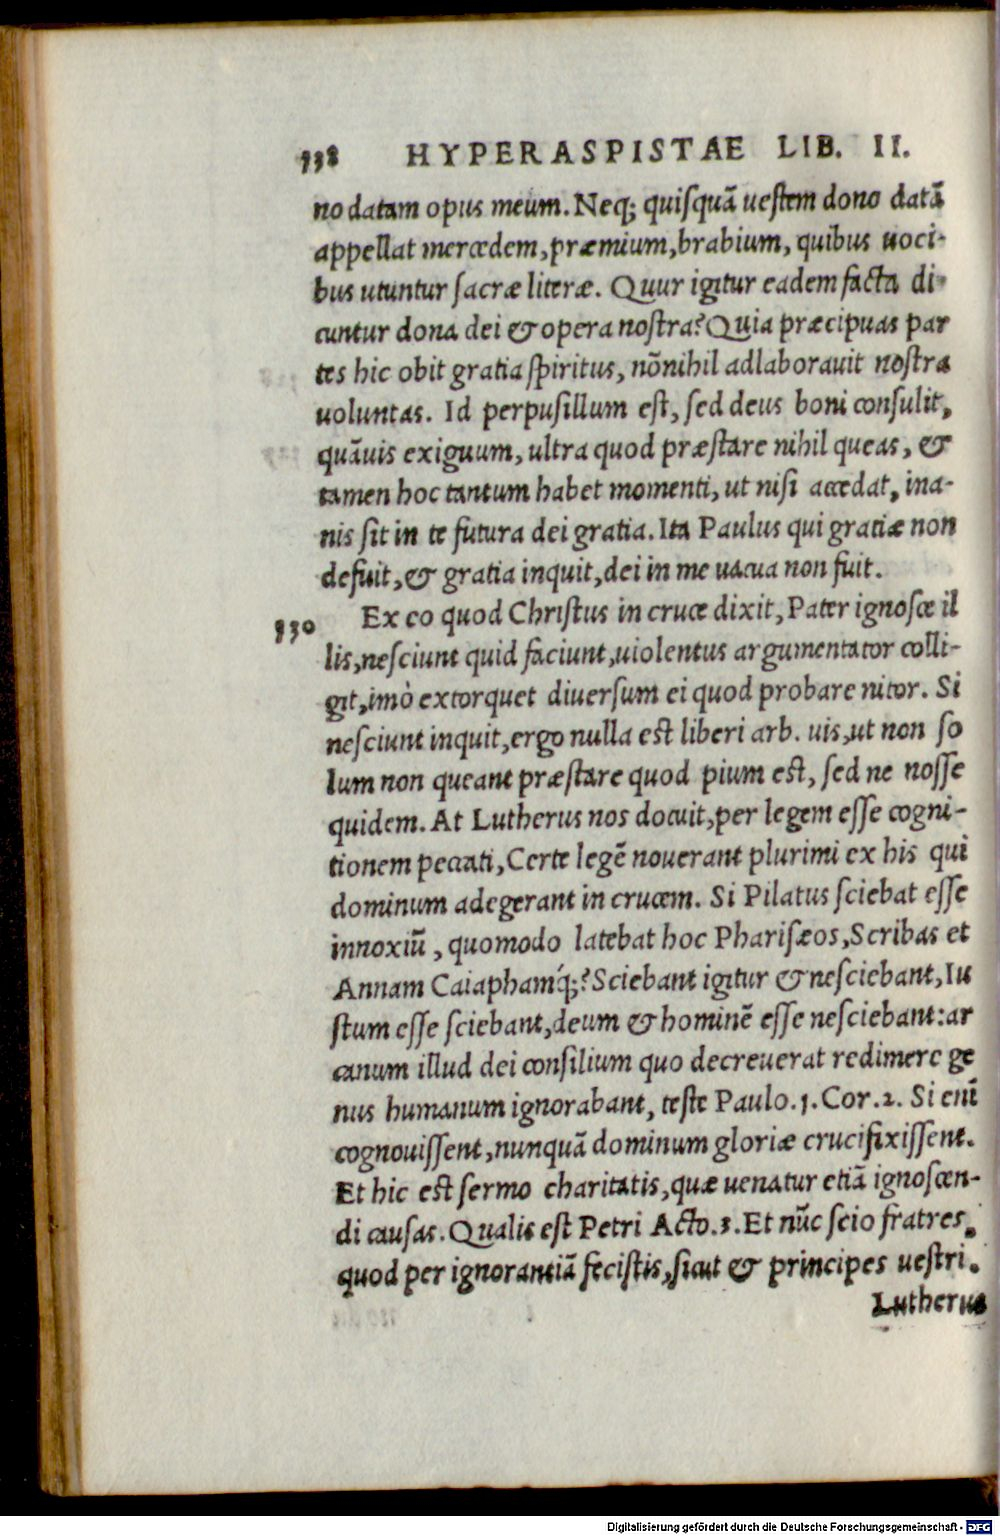 538 HYPERASPISTAE LIB. II.
no datam opus meum. Neq; quiſquā ueſtem dono datā
appellat mercedem, præmium, brabium, quibus uoci-
bus utuntur ſacræ literæ. Quur igitur eadem facta di-
cuntur dona dei & opera noſtra? Quia præcipuas par
tes hic obit gratia ſpiritus, nōnihil adlaborauit noſtra
uoluntas. Id perpuſillum eſt, ſed deus boni conſulit,
quāuis exiguum, ultra quod præſtare nihil queas, &
tamen hoc tantum habet momenti, ut niſi accedat, ina-
nis ſit in te futura dei gratia. Ita Paulus qui gratiæ non
defuit, & gratia inquit, dei in me uacua non fuit.
530 Ex eo quod Chriſtus in cruce dixit, Pater ignoſce il
lis, neſciunt quid faciunt, uiolentus argumentator colli-
git, imò extorquet diuerſum ei quod probare nitor. Si
neſciunt inquit, ergo nulla eſt liberi arb. uis, ut non ſo
lum non queant præſtare quod pium eſt, ſed ne noſſe
quidem. At Lutherus nos docuit, per legem eſſe cogni-
tionem peccati, Certe legē nouerant plurimi ex his qui
dominum adegerant in crucem. Si Pilatus ſciebat eſſe
innoxiū, quomodo latebat hoc Phariſæos, Scribas et
Annam Caiaphamq́;? Sciebant igitur & neſciebant, Iu
ſtum eſſe ſciebant, deum & hominē eſſe neſciebant: ar
canum illud dei conſilium quo decreuerat redimere ge
nus humanum ignorabant, teſte Paulo. 1. Cor. 2. Si enī
cognouiſſent, nunquā dominum gloriæ crucifixiſſent.
Et hic eſt ſermo charitatis, quæ uenatur etiā ignoſcen-
di cauſas. Qualis eſt Petri Acto. 3. Et nūc ſcio fratres,
quod per ignorantiā feciſtis, ſicut & principes ueſtri.
Lutherus
Digitalisierung gefördert durch die Deutsche Forschungsgemeinschaft - DFG